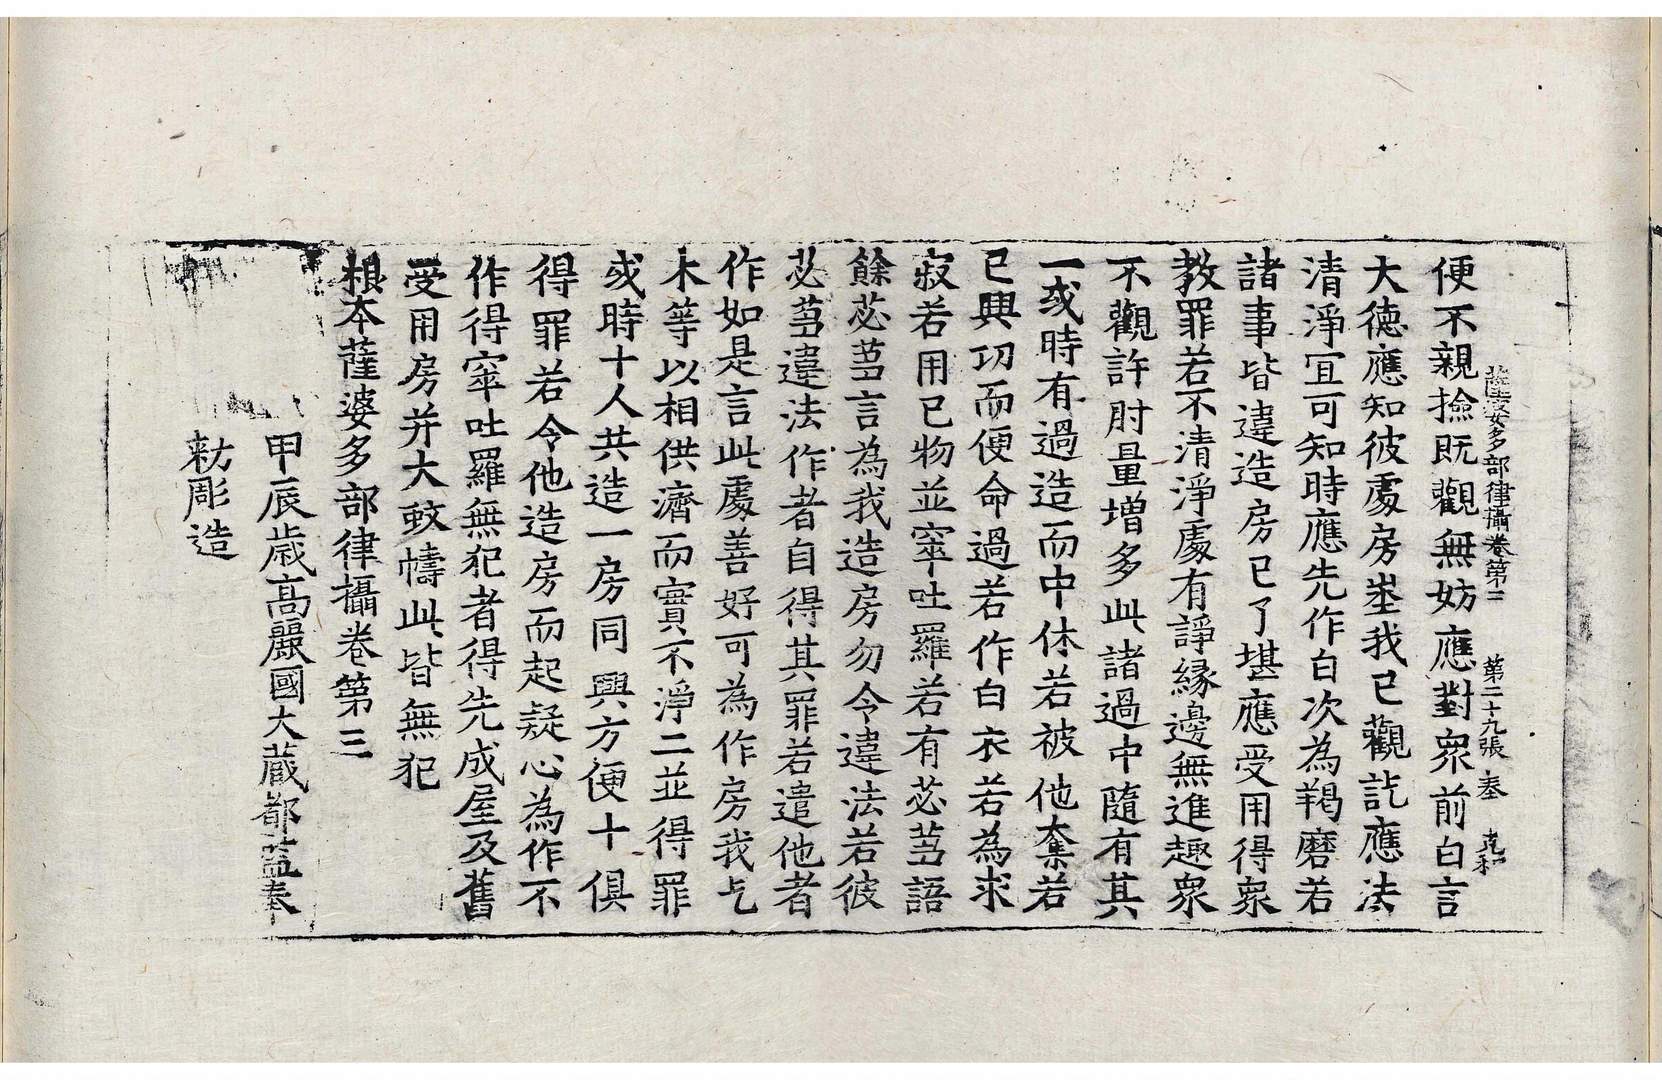 薩婆多部律攝卷第三 第二十九張 奉
便不親撿旣觀無妨應對衆前白言
大德應知彼處房㘴我已觀訖應法
清淨冝可知時應先作白次為羯磨若
諸事皆違造房已了堪應受用得衆
教罪若不清淨處有諍緣邊無進趣衆
不觀許肘量增多此諸過中隨有其
一或時有過造而中休若被他奪若
已興㓛而便命過若作白衣若為求
寂若用己物並窣吐羅若有苾芻語
餘苾芻言為我造房勿令違法若彼
苾芻違法作者自得其罪若遣他者
作如是言此處善好可為作房我乞
木等以相供濟而實不淨二並得罪
或時十人共造一房同興方便十俱
得罪若令他造房而起疑心為作不
作得窣吐羅無犯者得先成屋及舊
受用房并大蚊幬此皆無犯
根本薩婆多部律攝卷第三
甲辰歲高麗國大藏都監奉
勑彫造